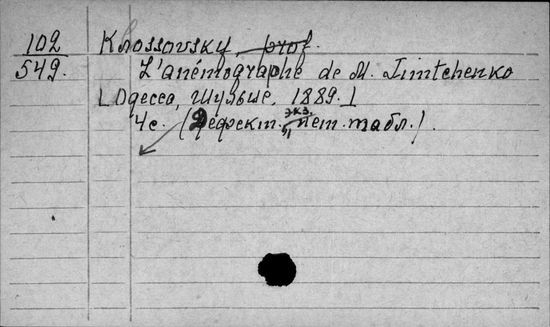 102 Klossovsky, prof.
549. L'anémographe de M. Timtchenko
[Одесса, Шульце, 1889.]
4 с. (Дефект. экз., нет табл.).